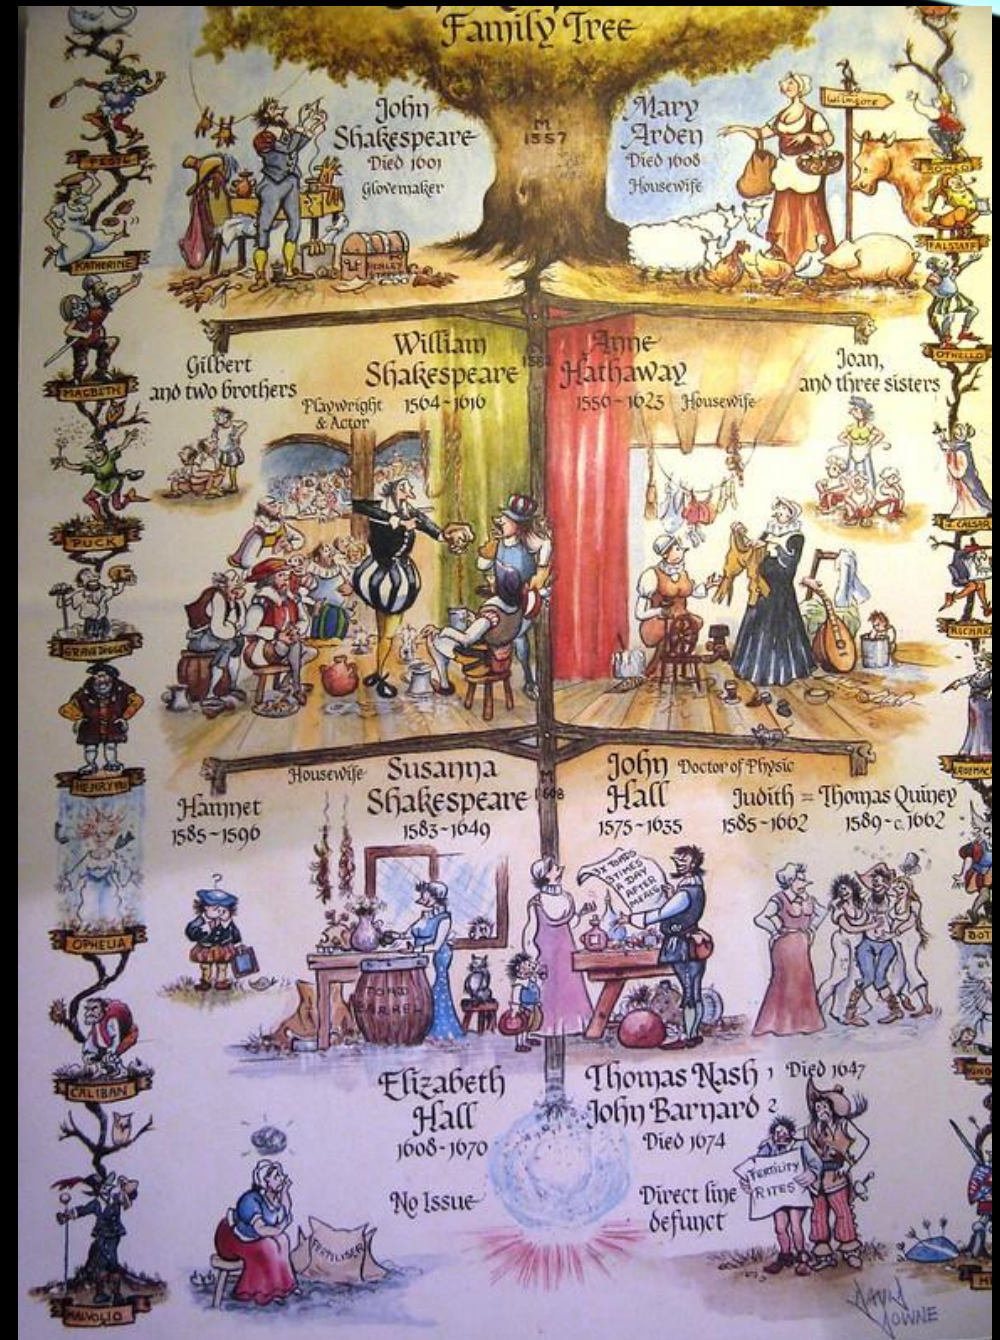 Family Tree
John
Shakespeare
Died 1601
Glovemaker
M
1557
Mary
Arden
Died 1608
Housewife
Wilmcote
HENLEY
STREET
Gilbert
and two brothers
William
Shakespeare
1564~1616
Playwright
& Actor
M
1582
Anne
Hathaway
1556~1623
Housewife
Joan,
and three sisters
Hamnet
1585~1596
Housewife
Susanna
Shakespeare
1583~1649
M
1608
John
Hall
Doctor of Physic
1575~1635
Judith = Thomas Quiney
1585~1662
1589~c.1662
?
TOAD
BARREL
TOADS
TIMES
A DAY
AFTER
MEALS
Elizabeth
Hall
1608~1670
No Issue
Thomas Nash 1 Died 1647
John Barnard 2
Died 1674
Direct line
defunct
FERTILISER
FERTILITY
RITES
FESTE
KATHERINE
MACBETH
PUCK
GRAVE DIGGER
HENRY VIII
OPHELIA
CALIBAN
MALVOLIO
ROMEO
FALSTAFF
OTHELLO
J. CAESAR
RICHARD
BOT